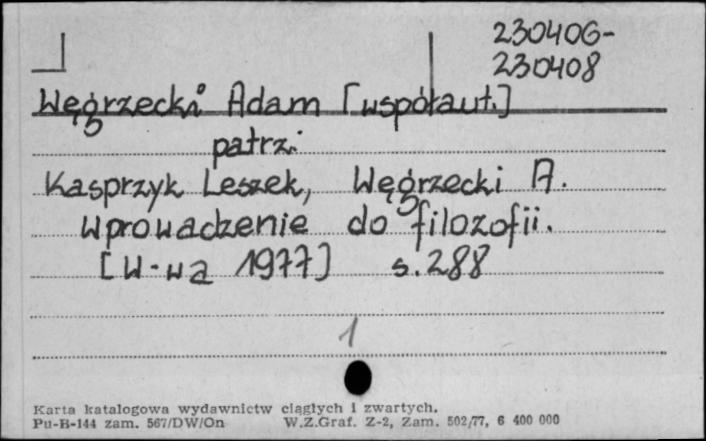 230406-
230408
Węgrzecki Adam [współaut.]
patrz:
Kasprzyk Leszek, Węgrzecki A.
Wprowadzenie do filozofii.
[W-wa 1977] s. 288
1
Karta katalogowa wydawnictw ciągłych i zwartych.
Pu-B-144 zam. 567/DW/On W.Z.Graf. Z-2, Zam. 502/77, 6 400 000